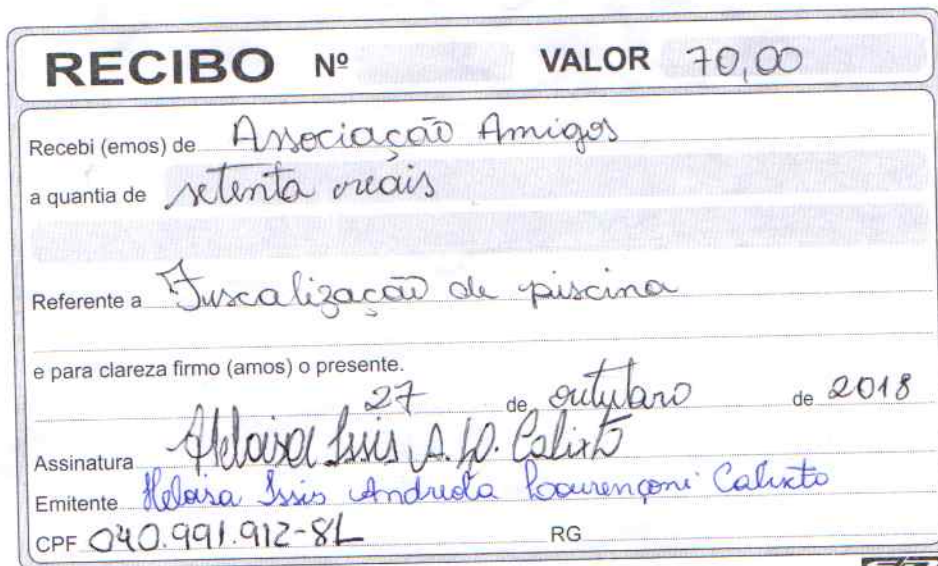 RECIBO Nº VALOR 70,00
Recebi (emos) de Associação Amigos
a quantia de setenta reais
Referente a Fiscalização de piscina
e para clareza firmo (amos) o presente.
27 de outubro de 2018
Assinatura Heloisa Issis A. L. Calixto
Emitente Heloisa Issis Andreola Lourençoni Calixto
CPF 040.991.912-81 RG